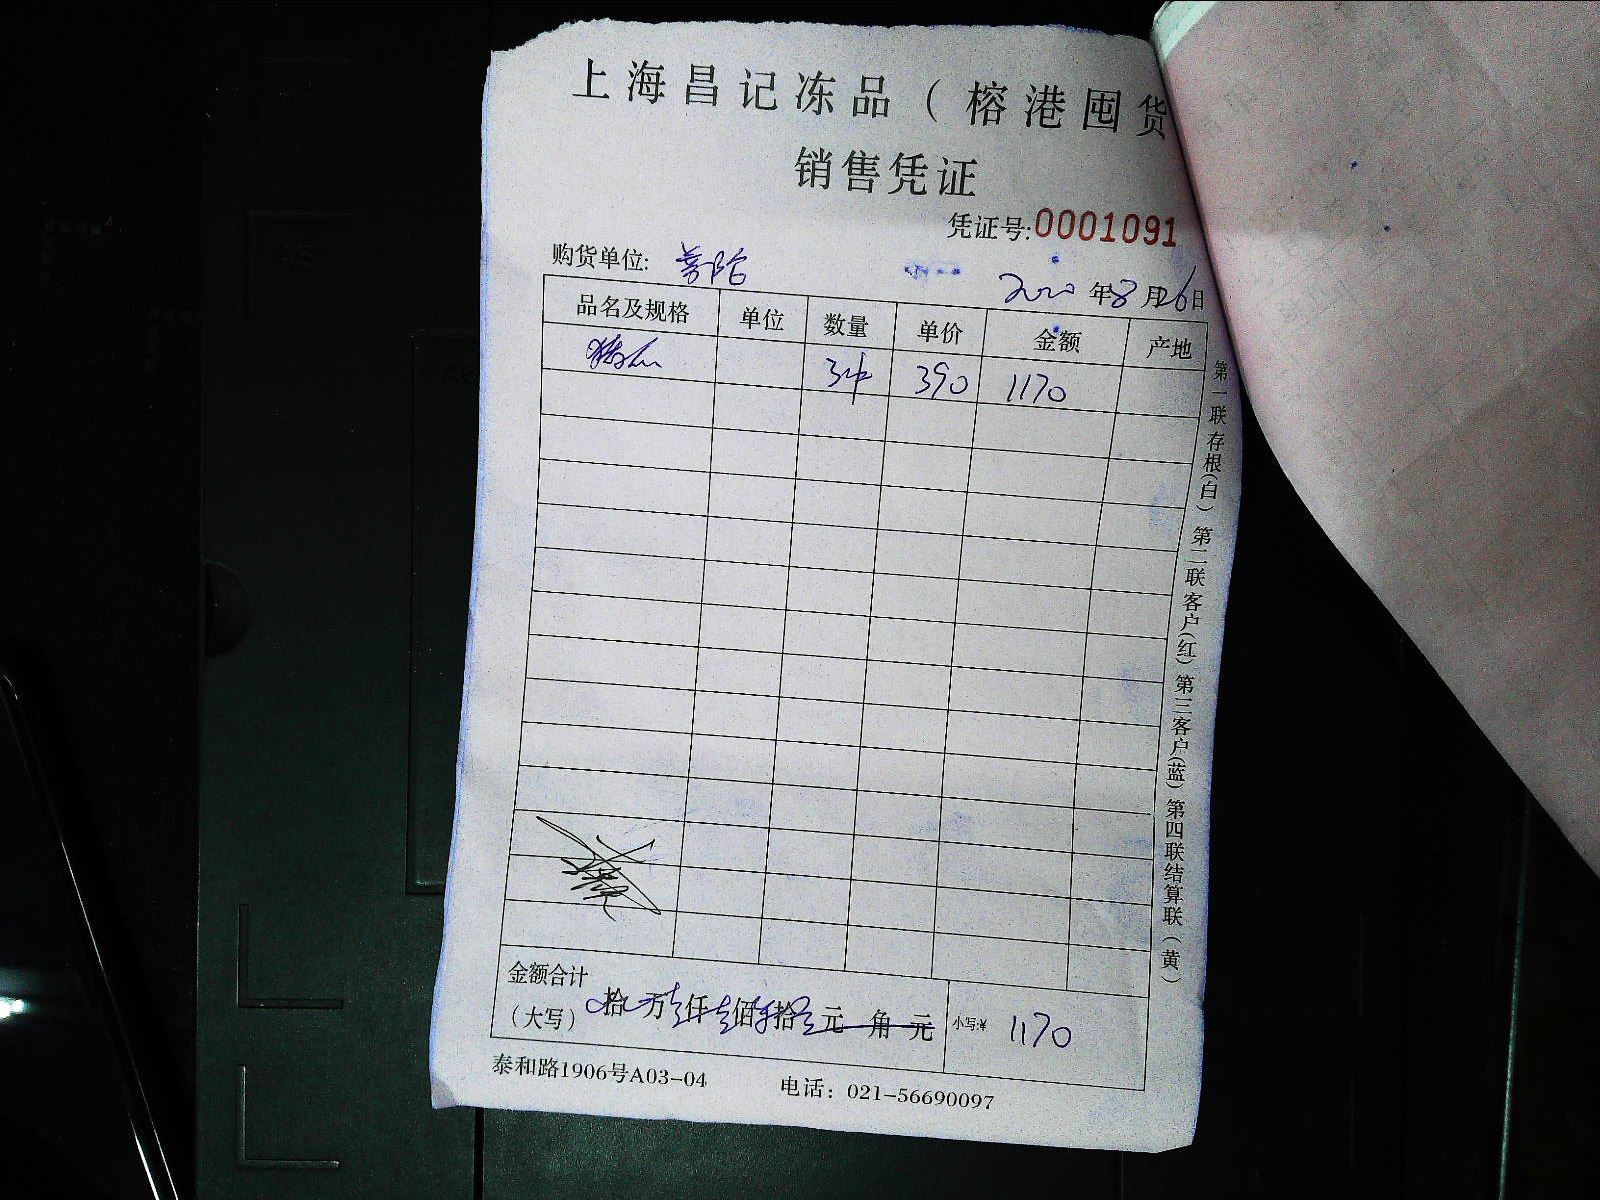 上海昌记冻品（榕港囤货
销售凭证
凭证号:0001091
购货单位: 普陀
2020 年 8 月 26 日
品名及规格 单位 数量 单价 金额 产地
3件 390 1170
金额合计
（大写） 拾 万 壹仟 壹佰 柒拾 元 角 元 小写:¥ 1170
泰和路1906号A03-04 电话：021-56690097
第一联存根(白) 第二联客户(红) 第三客户(蓝) 第四联结算联(黄)